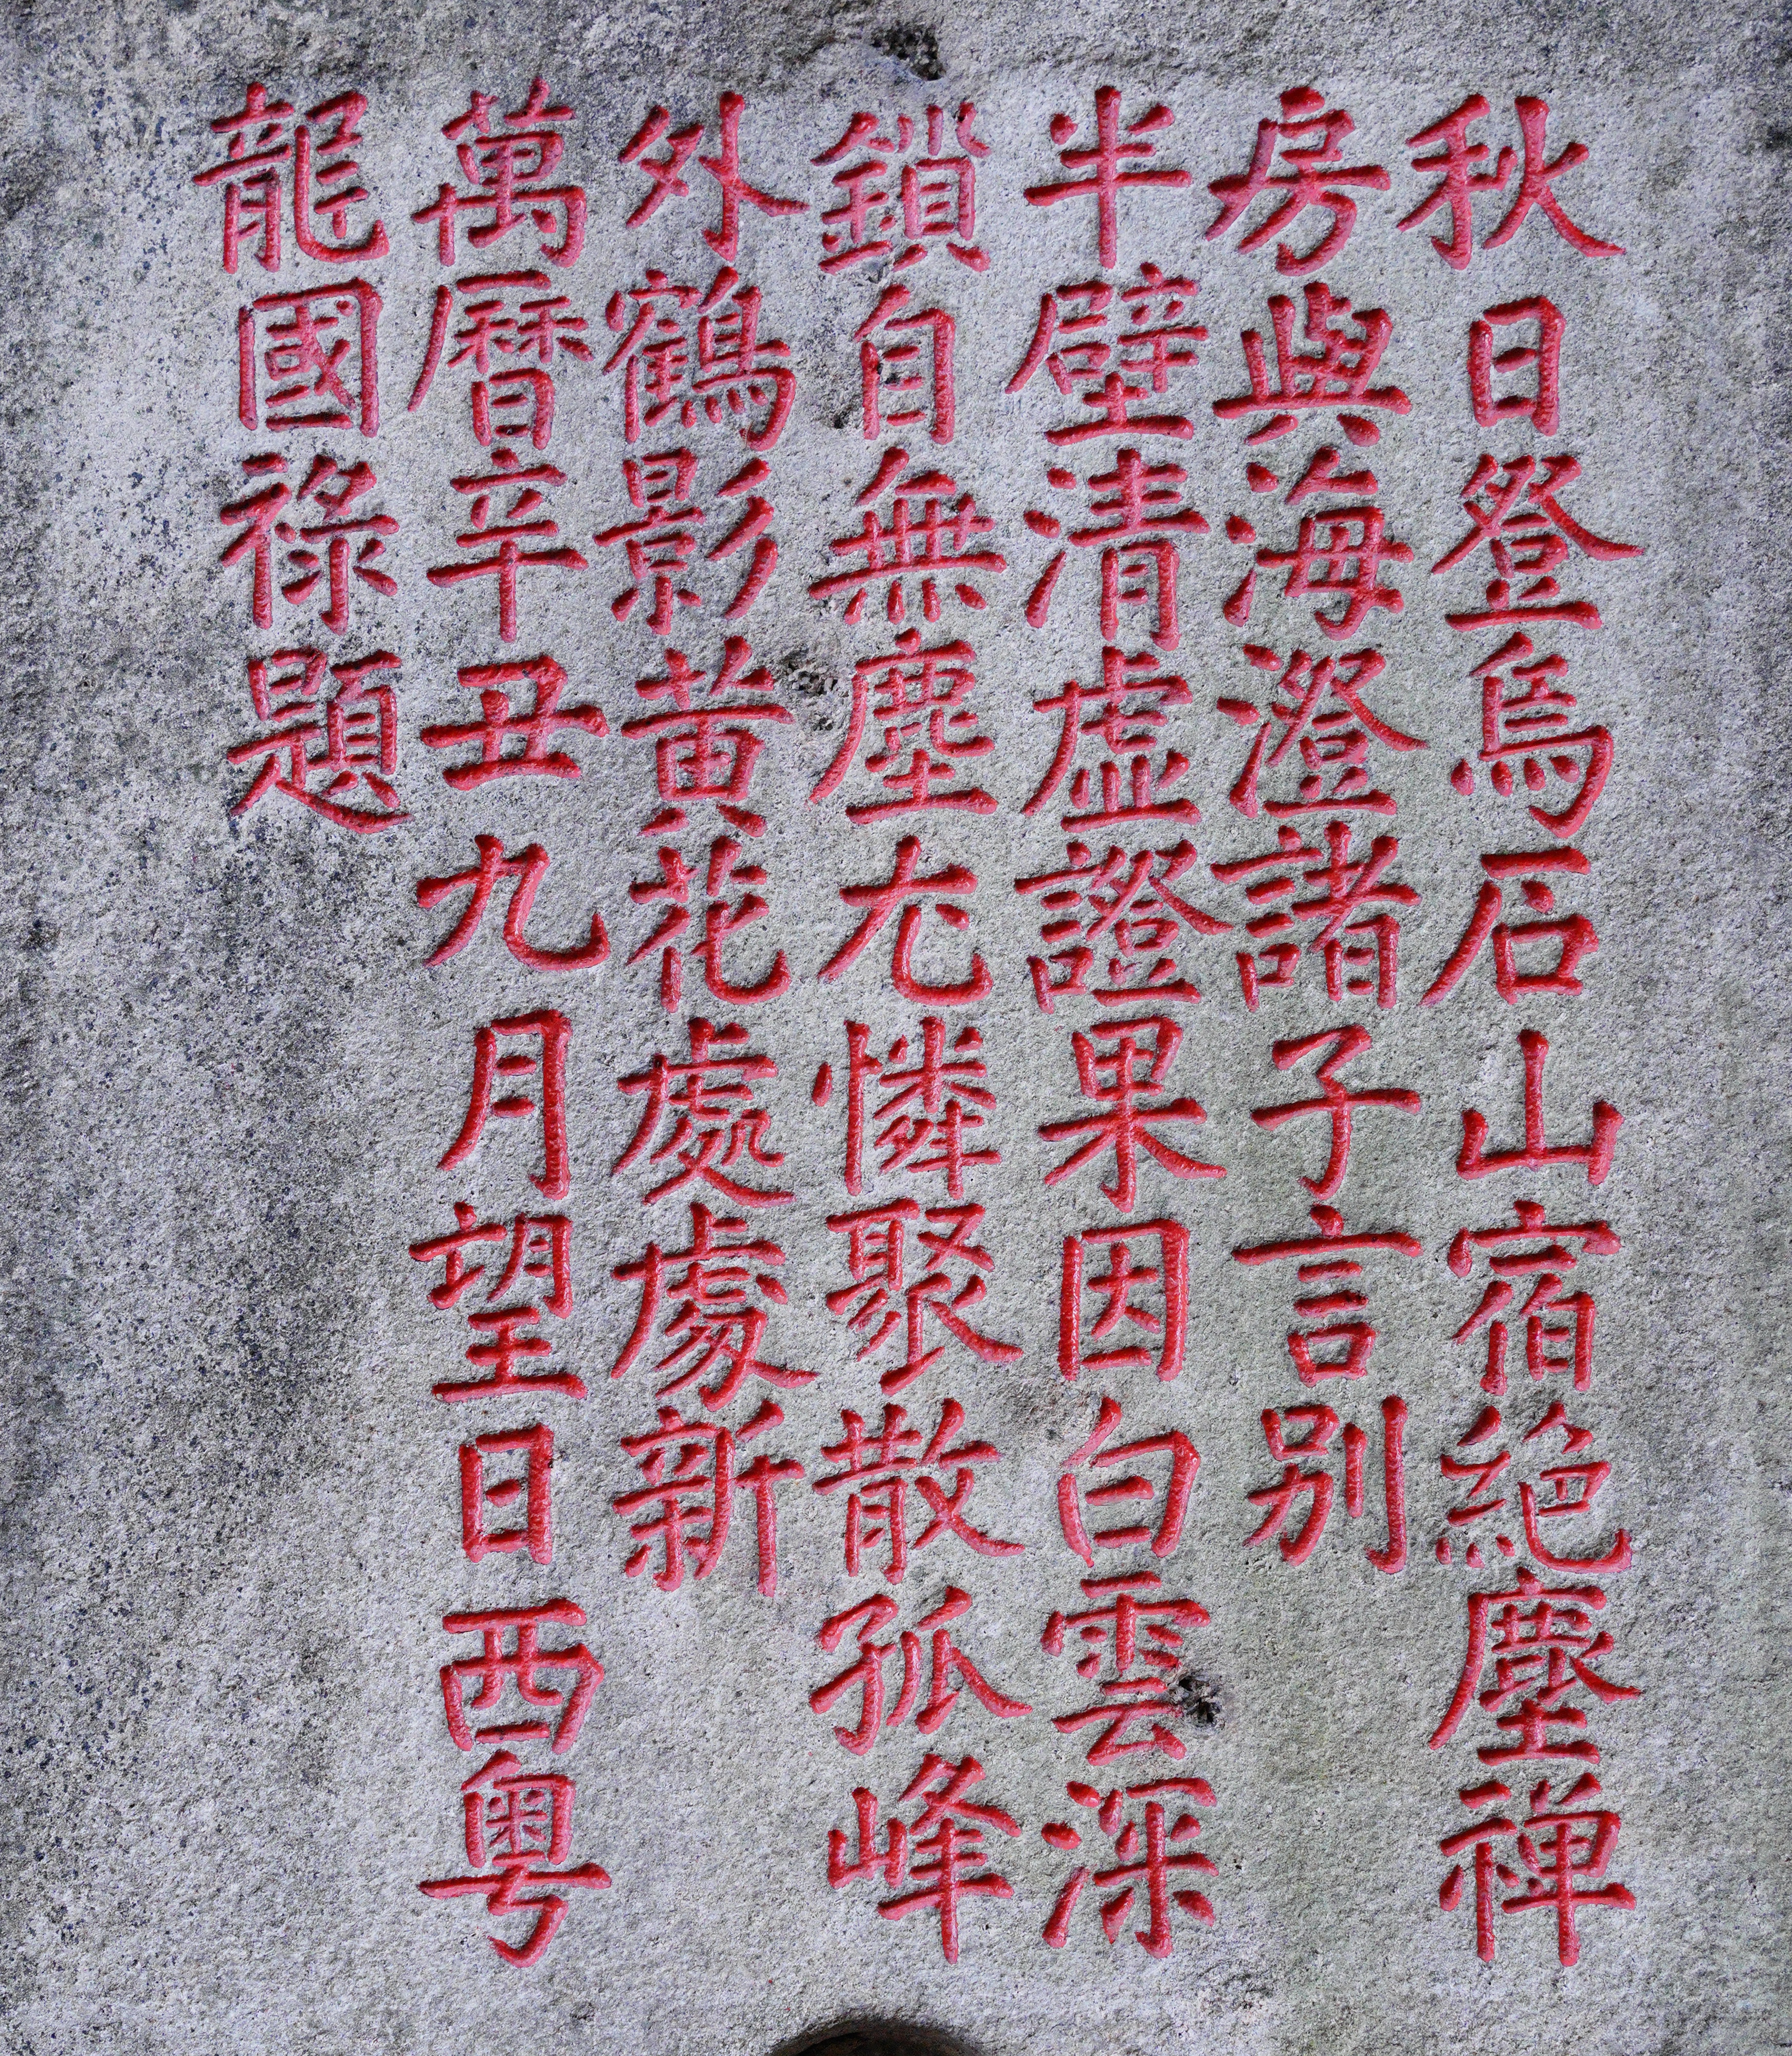 秋日登烏石山宿絕塵禅
房與海澄諸子言别
半壁清虛證果因白雲深
鎖自無塵尤憐聚散孤峰
外鶴影黄花處處新
萬曆辛丑九月望日西粤
龍國祿題